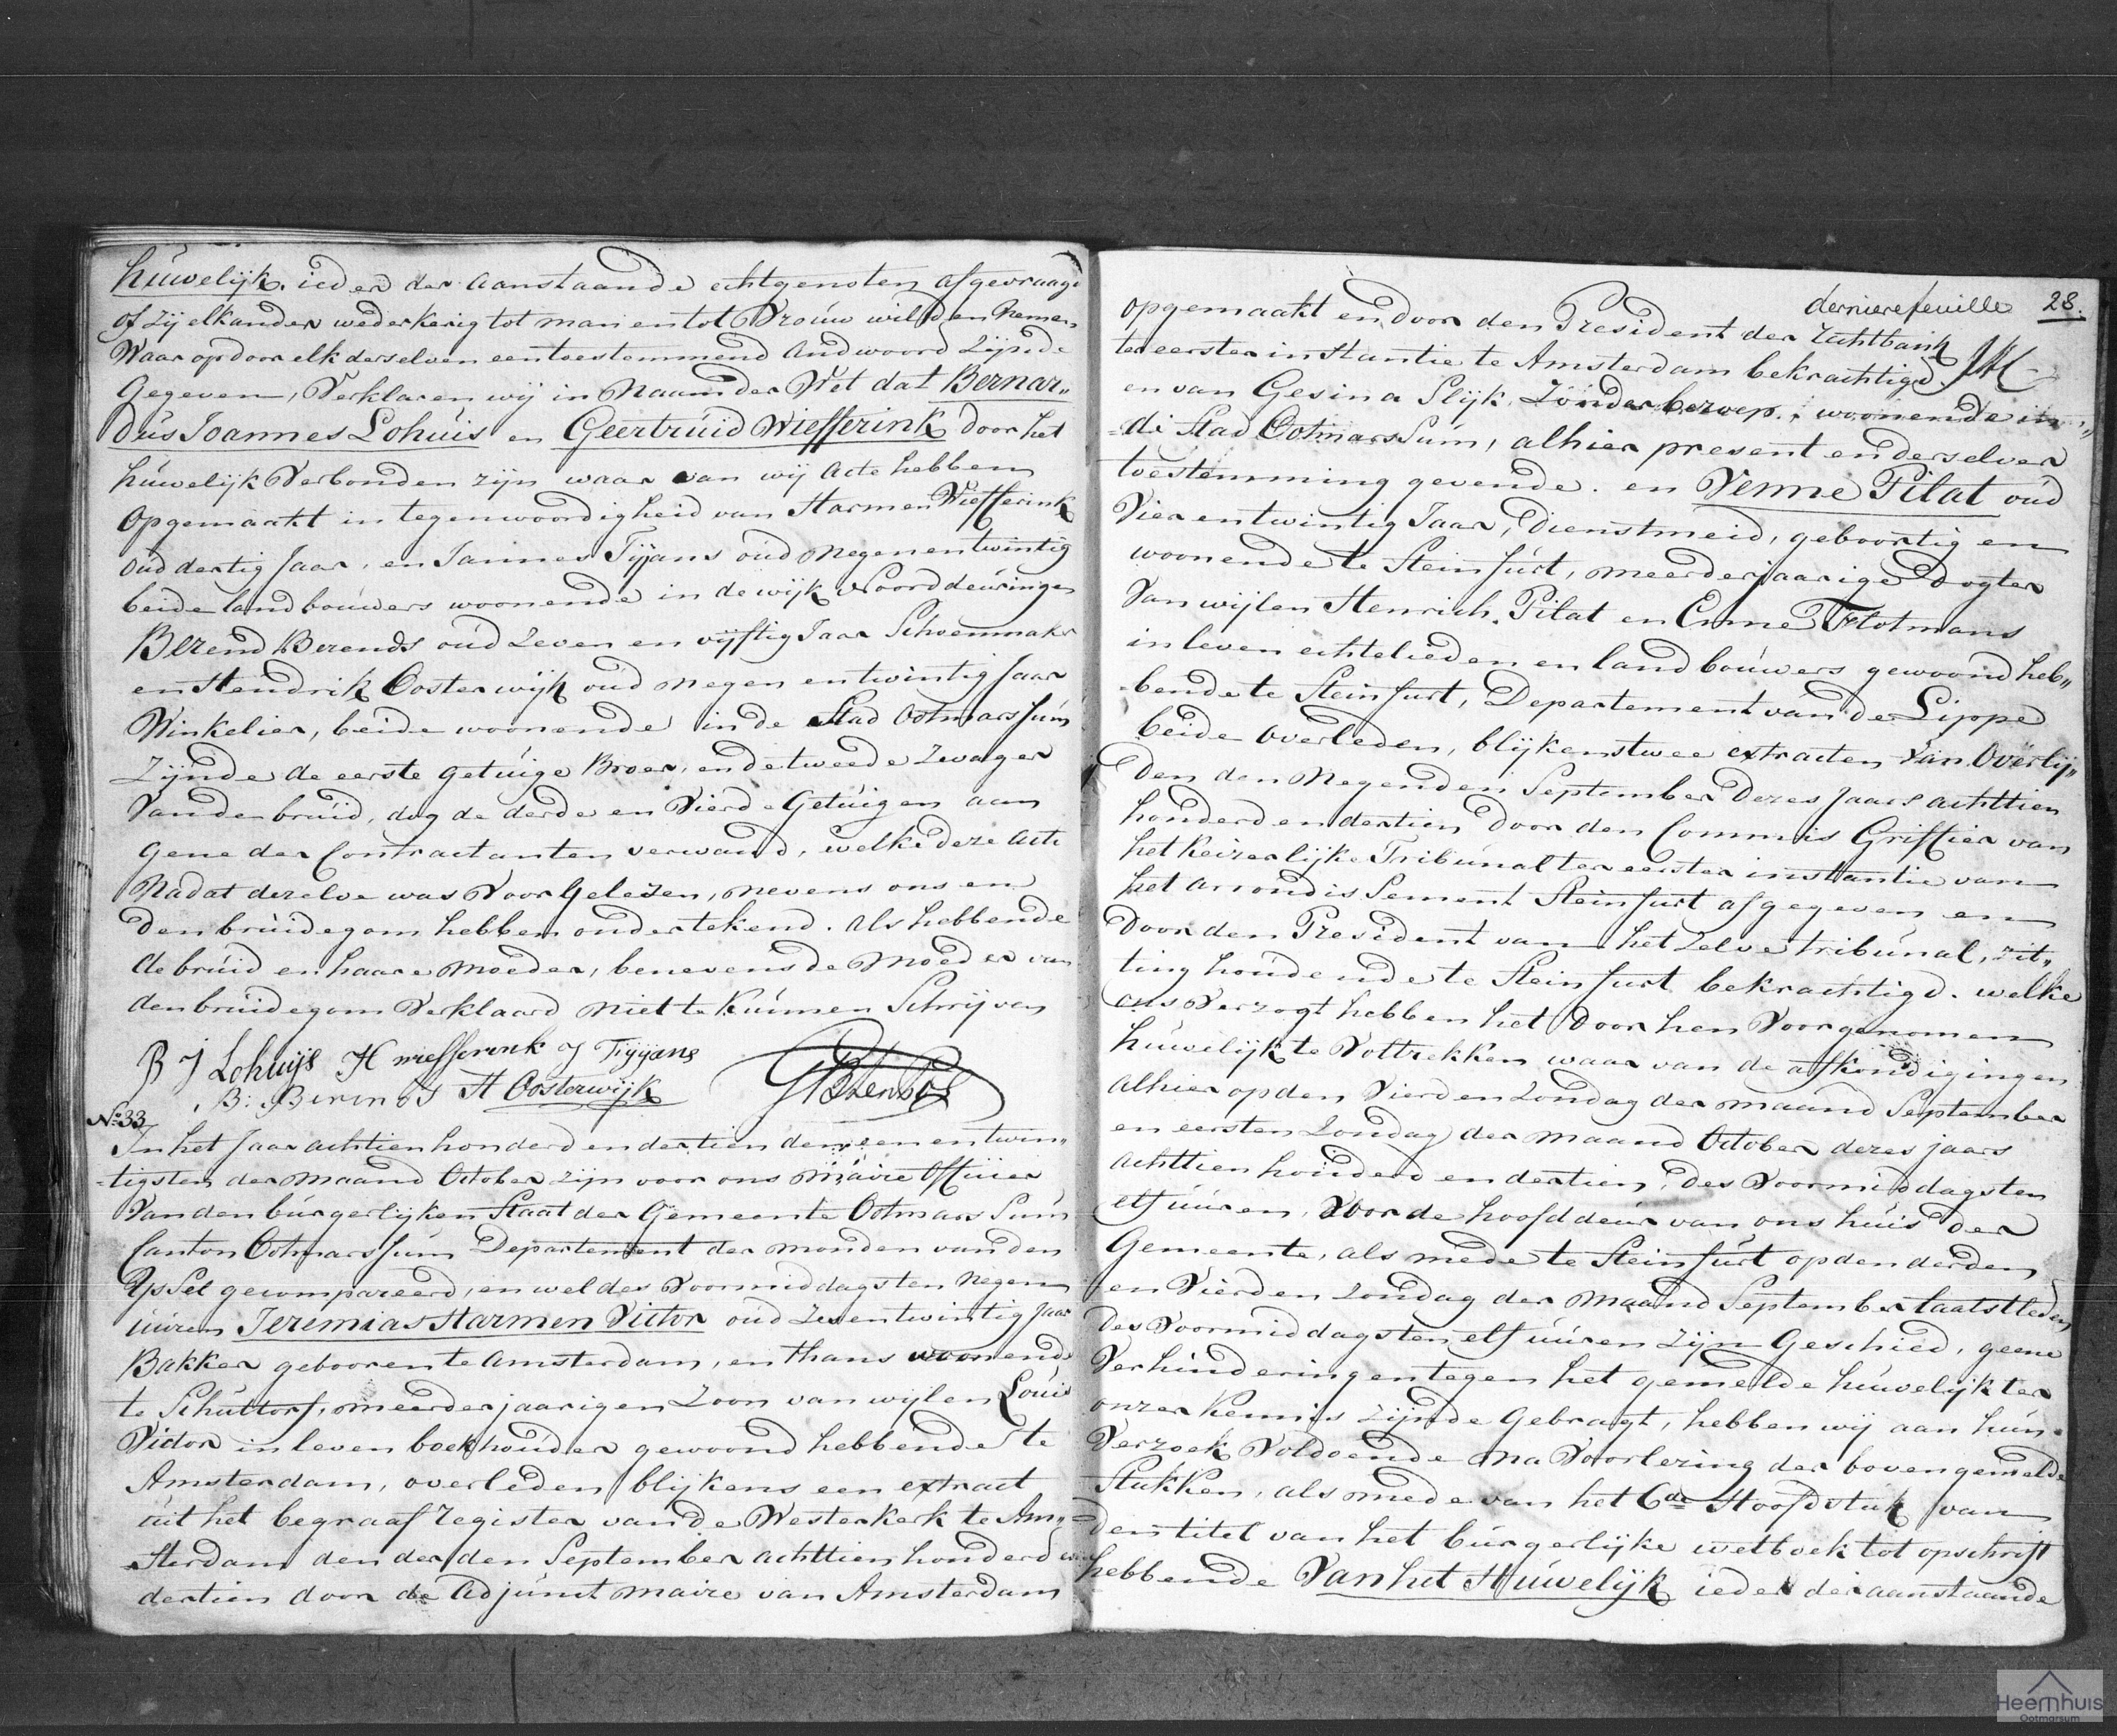 húwelijk. ieder der aanstaande echtgenoten afgevraagd
of zij elkander wederkerig tot man en tot Vrouw wilden nemen
Waar op door elk derselven een toestemmend andwoord zijnde
gegeven, Verklaren wij in Naam der Wet dat Bernar„
dús Joannes Lohúis en Geertrúid Wiefferink door het
húwelijk Verbonden zijn waar van wij acte hebben
opgemaakt in tegenwoordigheid van Harmen Wiefferink
oúd dertig Jaar, en Jannes Tijans oúd negenentwintig
beide landboúwers woonende in de wijk Noorddeúringen
Berend Berends oúd Zeven en vijftig Jaar Schoenmaker
en Hendrik Oosterwijk oúd negen entwintig Jaar
Winkelier, beide woonende in de Stad Ootmarssúm
Zijnde de eerste getúige Broer, en de tweede Zwager
Van de brúid, dog de derde en Vierde Getúigen aan
gene der Contractanten verwand, welke deze acte
Nadat dezelve was Voorgelezen, nevens ons en
den brúidegom hebben ondertekend. als hebbende
de brúid en haare moeder, benevens de moeder van
den brúidegom Verklaard niet te Kúnnen Schrijven
B J Lohuijs H wiefferink J Tijjans
B: Berends H Oosterwijk
No: 33
In het Jaar achtien honderd en dertien den een en twin„
tigsten der maand October zijn voor ons maire officier
Van den búrgerlijken Staat der Gemeente Ootmarssúm
Canton Ootmarssúm Departement der monden van den
IJssel gecompareerd, en wel des Voormiddags ten negen
úúren Jeremias Harmen Victor oúd Zesentwintig Jaar
Bakker gebooren te Amsterdam, en thans woonende
te Schúttorf, meerderjaarigen Zoon van wijlen Loúis
Victor in leven boekhoúder gewoond hebbende te
Amsterdam, overleden blijkens een extract
úit het begraaf register van de Westerkerk te Am„
sterdam den derden September achttien honderd en
dertien door de Adjúnct maire van Amsterdam
derniere feuille 28.
opgemaakt en door den President der rechtbank
ter eerster instantie te Amsterdam bekrachtigd
en van Gesina Slijk Zonder beroep, woonende in
de Stad Ootmarssúm, alhier present en derselver
toestemming gevende. en Venne Pilat oúd
Vier en twintig Jaar, dienstmeid, geboortig en
woonende te Steinfúrt, meerderjaarige dogter
Van wijlen Henrich Pilat en Enne Flotmans
in leven echtelieden en landboúwers gewoond heb„
bende te Steinfurt, Departement van de Lippe
beide overleden, blijkens twee extracten Van Overlij„
den den Negenden September dezes Jaars achttien
honderd en dertien door den Commis Griffier van
het Keizerlijke Tribúnal ter eerster instantie van
het arrondissement Steinfurt afgegeven en
door den President van het zelve tribúnal, zit„
ting hoúdende te Steinfurt bekrachtigd. welke
ons Verzogt hebben het door hen Voorgenomen
húwelijk te Voltrekken waar van de afkondigingen
alhier op den Vierden Zondag der maand September
en eersten Zondag der maand October dezes jaars
achttien hoúderd en dertien, des Voormiddags ten
elf úúren, Voor de hoofddeúr van ons húis der
Gemeente, als mede te Steinfúrt op den derden
en Vierden Zondag der maand September laatstleden
des Voormiddags ten elf úúren zijn Geschied, geene
Verhinderingen tegen het gemelde húwelijk ter
onzer Kennis zijnde Gebragt, hebben wij aan hún
Verzoek Voldoende na Voorlezing der bovengemelde
Stukken, als mede van het 6de Hoofdstúk van
den titel van het búrgerlijke wetboek tot opschrift
hebbende Van het Húwelijk ieder der aanstaande
Heemhuis
Ootmarsum